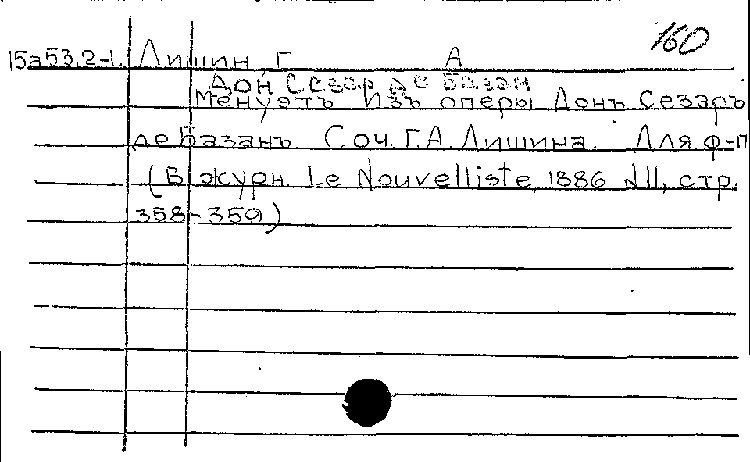 160
15а53.2-1. Лишин, Г А
Дон Сезар де Базан
Менуэтъ изъ оперы Донъ Сезаръ
де Базанъ. Соч. Г.А. Лишина. Для ф-п
(В журн. Le Nouvelliste, 1886 №11, стр.
358-359)